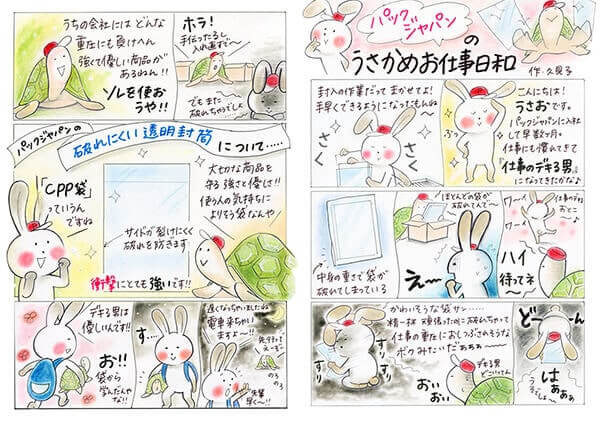 パックジャパン
の
うさかめお仕事日和
作・久見子
こんにちは!
うさおです。
パックジャパンに入社
して早数ヶ月。
仕事にも慣れてきて
『仕事のデキる男』
になってきたかな♪
封入の作業だって まかせてよ!
手早くできるようになったもんね〜
さく
さく
仕事のデキる
おとこ
ワーイ
ワーイ
ほとんどの袋が
破れてんで〜
中身の重さで袋が
破れてしまっている
え〜
ハイ
待ってネ
どーーん
はぁぁぁ
かわいそうな袋サン……
精一杯 頑張ったのに破れちゃって
仕事の重圧におしつぶされそうな
ボクみたいだぁぁぁ〜
すり
すり
すり
すり
おいおい
デキる男
どこいってん
ホラ!
手伝ったるし
入れ直すで〜
でもまた
破れちゃうでしょ
うちの会社には どんな
重圧にも負けへん
強くて優しい商品が
あるねん!!
ソレを使お
うや!!
パックジャパンの
破れにくい透明封筒
について……
大切な商品を
守る 強さと優しさ!!
使う人の気持ちに
よりそう袋なんや
「CPP袋」
っていうん
ですね
サイドが裂けにくく
破れを防ぎます
衝撃にとても強いです!!
遅くなっちゃいましたね
電車来ちゃい
ますよ〜!!
先行って
え〜で〜
のろ
のろ
先輩
早く〜!!
す…
デキる男は
優しいんです!!
お!!
袋から
学んだんや
な!!